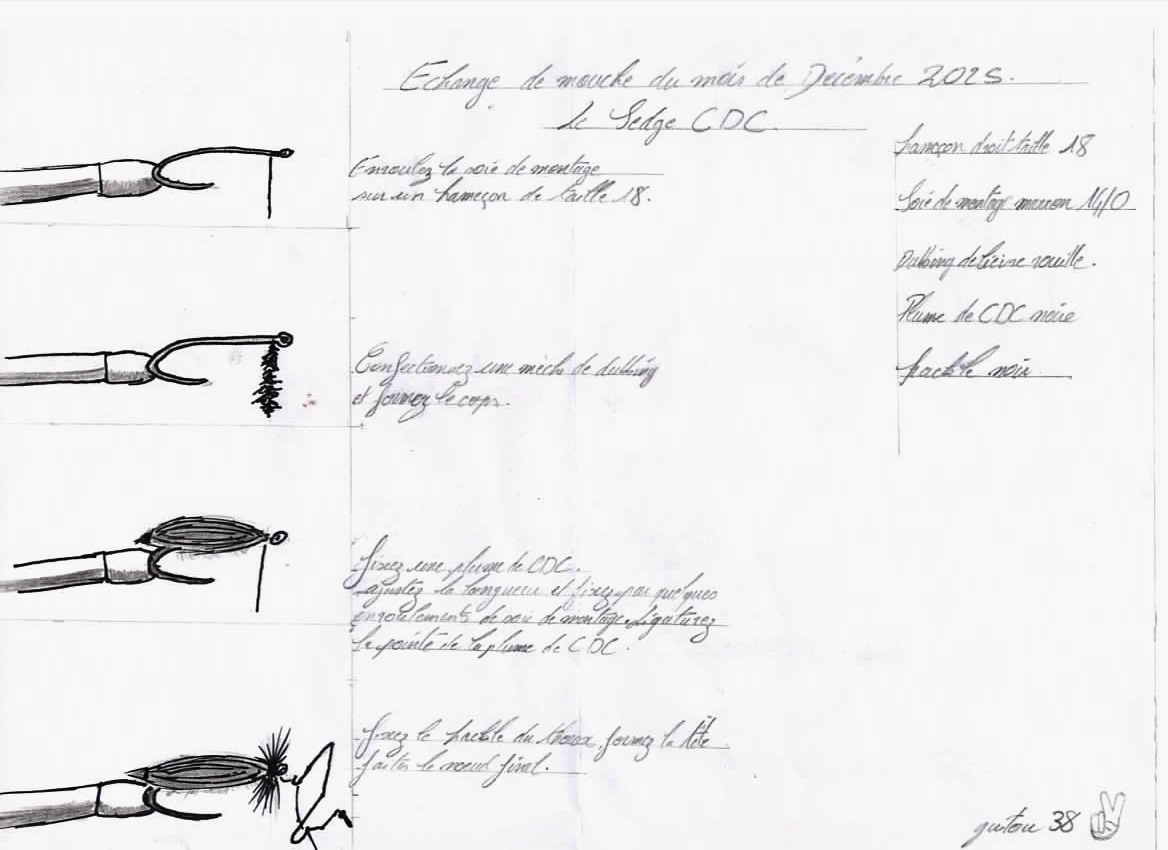 Echange de mouche du mois de Décembre 2025.
Le Sedge CDC.
Enroulez la soie de montage
sur un hameçon de taille 18.
Confectionnez une mèche de dubbing
et formez le corps.
fixez une plume de CDC.
ajustez la longueur et fixez par quelques
enroulements de soie de montage. Ligaturez
la pointe de la plume de CDC.
fixez le hackle du thorax, formez la tête
faites le noeud final.
hameçon droit taille 18
Soie de montage marron 14/0
Dubbing de lièvre rouille.
Plume de CDC noire
hackle noir
gustou 38